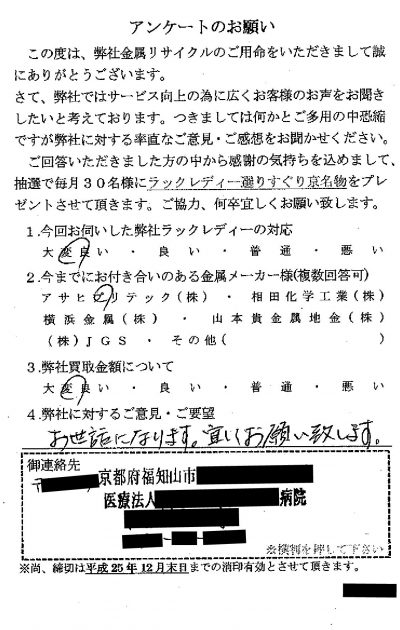 アンケートのお願い
この度は、弊社金属リサイクルのご用命をいただきまして誠
にありがとうございます。
さて、弊社ではサービス向上の為に広くお客様のお声をお聞き
したいと考えております。つきましては何かとご多用の中恐縮
ですが弊社に対する率直なご意見・ご感想をお聞かせください。
ご回答いただきました方の中から感謝の気持ちを込めまして、
抽選で毎月30名様にラックレディー選りすぐり京名物をプレ
ゼントさせて頂きます。ご協力、何卒宜しくお願い致します。
1.今回お伺いした弊社ラックレディーの対応
大変良い ・ 良い ・ 普通 ・ 悪い
2.今までにお付き合いのある金属メーカー様(複数回答可)
アサヒプリテック(株) ・ 相田化学工業(株)
横浜金属(株) ・ 山本貴金属地金(株)
(株)JGS ・ その他( )
3.弊社買取金額について
大変良い ・ 良い ・ 普通 ・ 悪い
4.弊社に対するご意見・ご要望
お世話になります。宜しくお願い致します。
御連絡先
〒
京都府福知山市
医療法人 病院
※捺判を押して下さい
※尚、締切は平成25年12月末日までの消印有効とさせて頂きます。